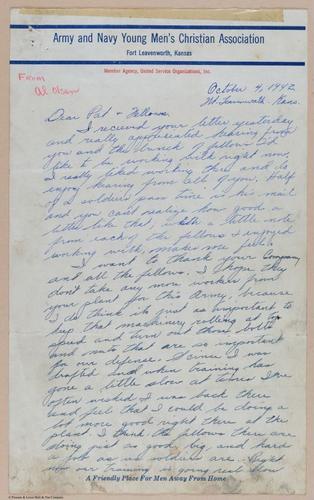 Army and Navy Young Men's Christian Association
Fort Leavenworth, Kansas
Member Agency, United Service Organizations, Inc.
From
Al Olsen
October 4, 1942
Ft. Leavenworth - Kans.
Dear Pat + Fellows,
I received your letter yesterday
and really appreciated hearing from
you and the bunch of fellows I'd
like to be working with right now.
I really liked working there and to
enjoy hearing from all of you. Half
of a soldiers past time is his mail
and you can't realize how good a
letter like that, with a little note
from each of the fellows I enjoyed
working with, makes me feel.
I want to thank your Company
and all the fellows. I hope they
don't take any more workers from
your plant for this Army, because
I do think its just as important to
keep that machinery rolling at top
speed and turn out those bolts
and nuts that are so important
for our defense. Since I was
drafted and when training has
gone a little slow at times I've
often wished I was back there
and feel that I could be doing a
lot more good right there at the
plant. I think the fellows there are
doing just as good, big, and hard
a job as us soldiers are. Right
now our training is going real slow
A Friendly Place For Men Away From Home